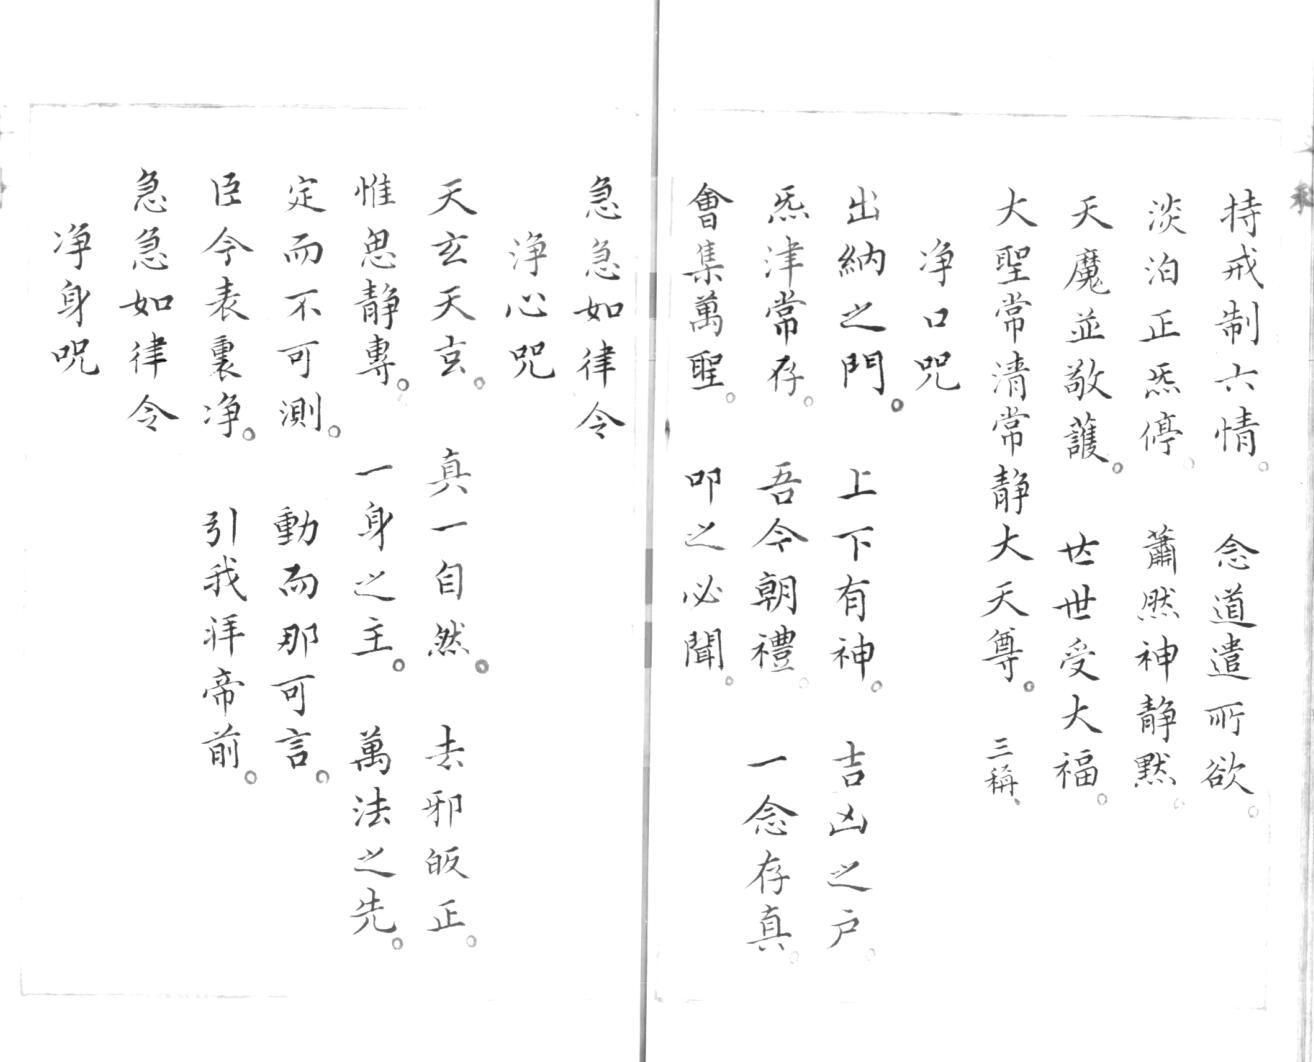 持戒制六情。念道遣所欲。
淡泊正炁停。蕭然神静默。
天魔並敬護。世世受大福。
大聖常清常静大天尊。三稱
净口咒
出納之門。上下有神。吉凶之户。
炁津常存。吾今朝禮。一念存真。
會集萬聖。叩之必聞。
急急如律令
浄心咒
天玄天玄。真一自然。去邪皈正。
惟思静專。一身之主。萬法之先。
定而不可測。動而那可言。
臣今表裏净。引我拜帝前。
急急如律令
净身咒